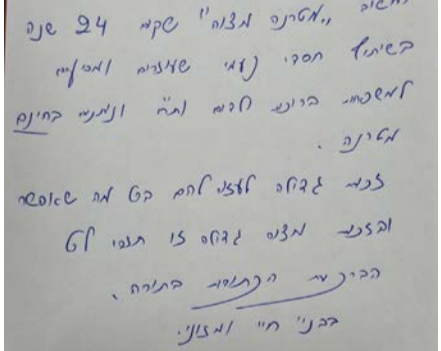 חשוב "מטרנה מצוה" שקם 24 שנה
בשיתוף חסדי נעמי שעוזרים ומסייעים
למשפחות ברוכות ילדים ות"ח ונותנים בחינם
מטרנה.
זכות גדולה לעזור להם בכל מה שאפשר
ובזכות מצוה גדולה זו תזכו לכל
הברכות הכתובות בתורה.
בבני חיי ומזוני.